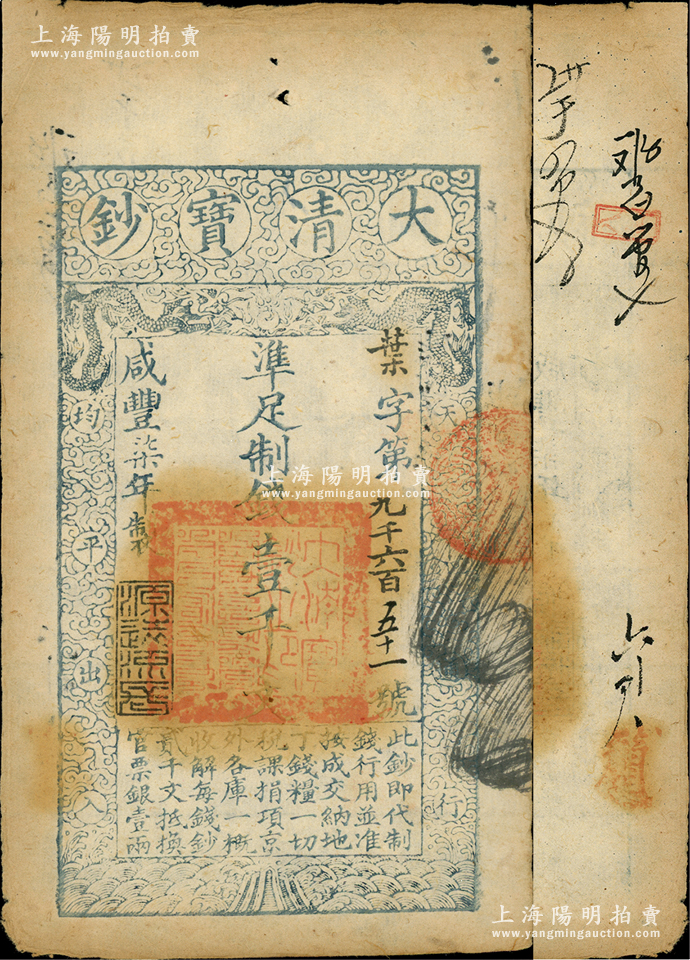 上海陽明拍賣
www.yangmingauction.com
上海陽明拍賣
www.yangmingauction.com
大清寶鈔
葉字第九千六百五十一號
準足制錢壹千文
咸豐柒年製
天
行
均平出入
上海陽明拍賣
www.yangmingauction.com
此鈔即代制
錢行用並准
按成交納地
丁錢糧一切
稅課捐項京
外各庫一概
收解每錢鈔
貳千文抵換
官票銀壹兩
上海陽明拍賣
www.yangmingauction.com